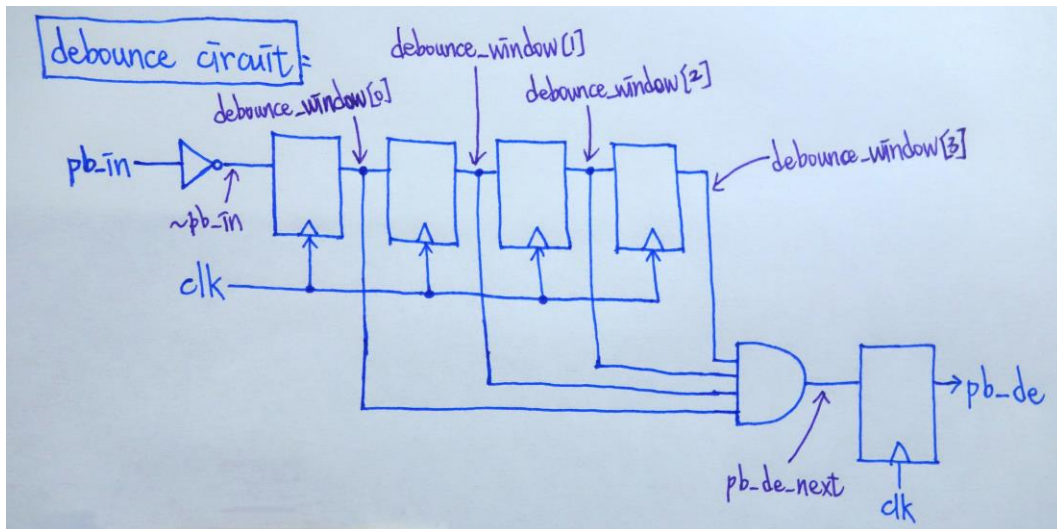 debounce circuit =
debounce_window[0]
debounce_window[1]
debounce_window[2]
debounce_window[3]
pb_in
~pb_in
clk
pb_de
pb_de_next
clk